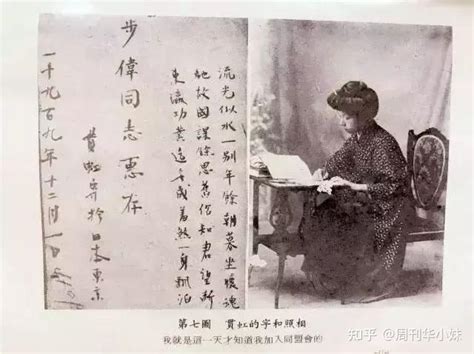 流光似水一別年餘朝暮坐暖魂
馳故國謀餘思舊知君望斷
東瀛功業遙千感羞煞一身飄泊
步偉同志惠存
貫虹寄於日本東京
一千九百九年十二月一日
第七圖 貫虹的字和照相
我就是這一天才知道我加入同盟會的
知乎 @周刊华小妹